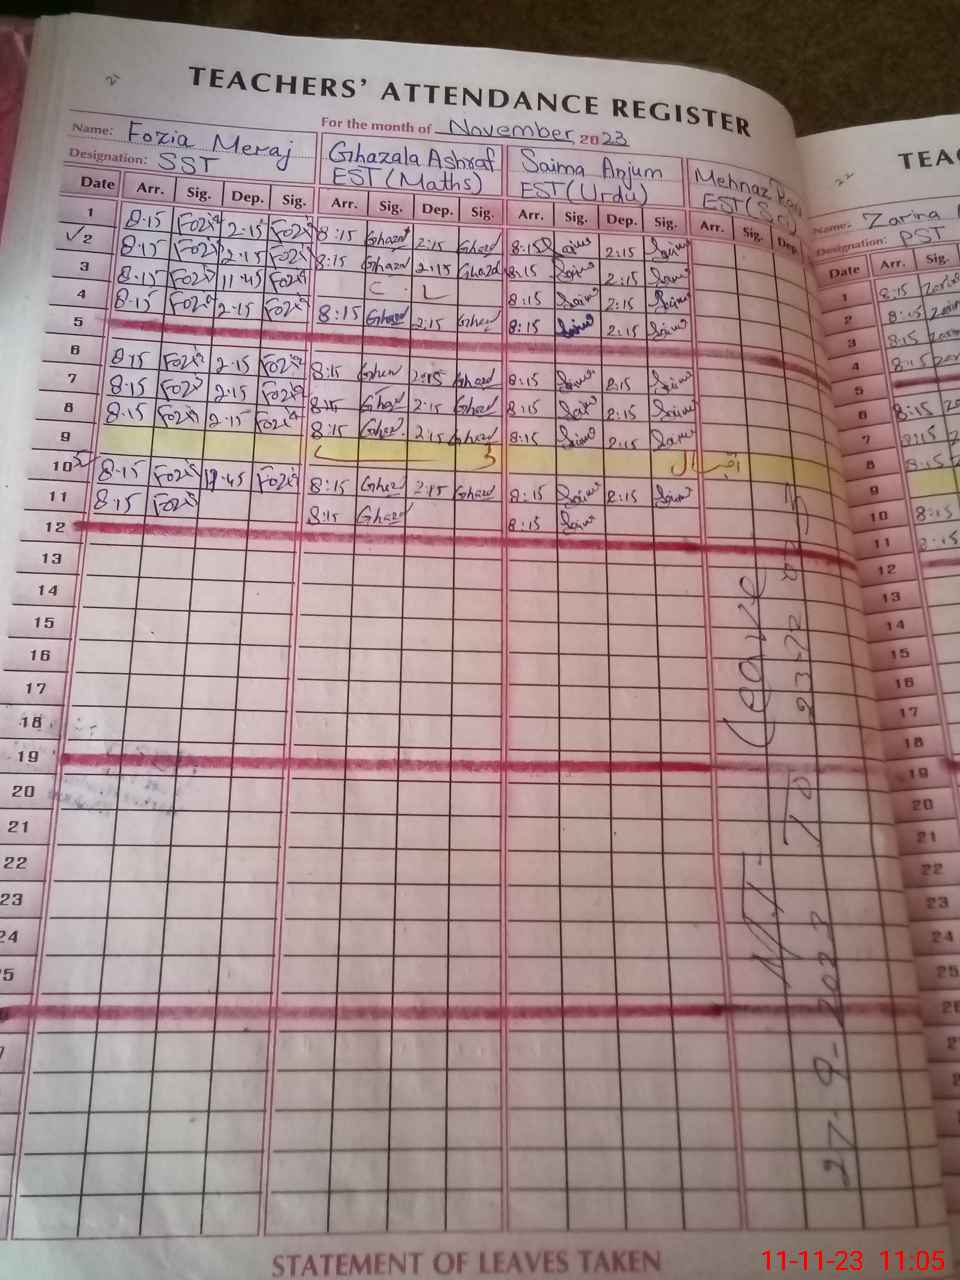 TEACHERS' ATTENDANCE REGISTER
For the month of November, 2023
Name: Fozia Meraj
Designation: SST
Ghazala Ashraf
EST (Maths)
Saima Anjum
EST (Urdu)
Mehnaz
EST (Sci)
Date Arr. Sig. Dep. Sig. Arr. Sig. Dep. Sig. Arr. Sig. Dep. Sig. Arr. Sig. Dep.
1 8:15 Fozia 2:15 Fozia 8:15 Ghazal 2:15 Ghazal 8:15 Saima 2:15 Saima
2 8:15 Fozia 2:15 Fozia 8:15 Ghazal 2:15 Ghazal 8:15 Saima 2:15 Saima
3 8:15 Fozia 11:45 Fozia C L 8:15 Saima 2:15 Saima
4 8:15 Fozia 2:15 Fozia 8:15 Ghazal 2:15 Ghazal 8:15 Saima 2:15 Saima
5
6 8:15 Fozia 2:15 Fozia 8:15 Ghazal 2:15 Ghazal 8:15 Saima 2:15 Saima
7 8:15 Fozia 2:15 Fozia 8:15 Ghazal 2:15 Ghazal 8:15 Saima 2:15 Saima
8 8:15 Fozia 2:15 Fozia 8:15 Ghazal 2:15 Ghazal 8:15 Saima 2:15 Saima
9
10 8:15 Fozia 11:45 Fozia 8:15 Ghazal 2:15 Ghazal 8:15 Saima 2:15 Saima
11 8:15 Fozia 8:15 Ghazal 8:15 Saima
12
13
14
15
16
17
18
19
20
21
22
23
24
25
Leave
27-9-2023 To 23-12-23
STATEMENT OF LEAVES TAKEN
22
TEA
Name: Zarina
Designation: PST
Date Arr. Sig.
1 8:15
2 8:15
3 8:15
4 8:15
5
6 8:15
7 8:15
8 8:15
9
10 8:15
11 8:15
12
13
14
15
16
17
18
19
20
21
22
23
24
25
26
11-11-23 11:05